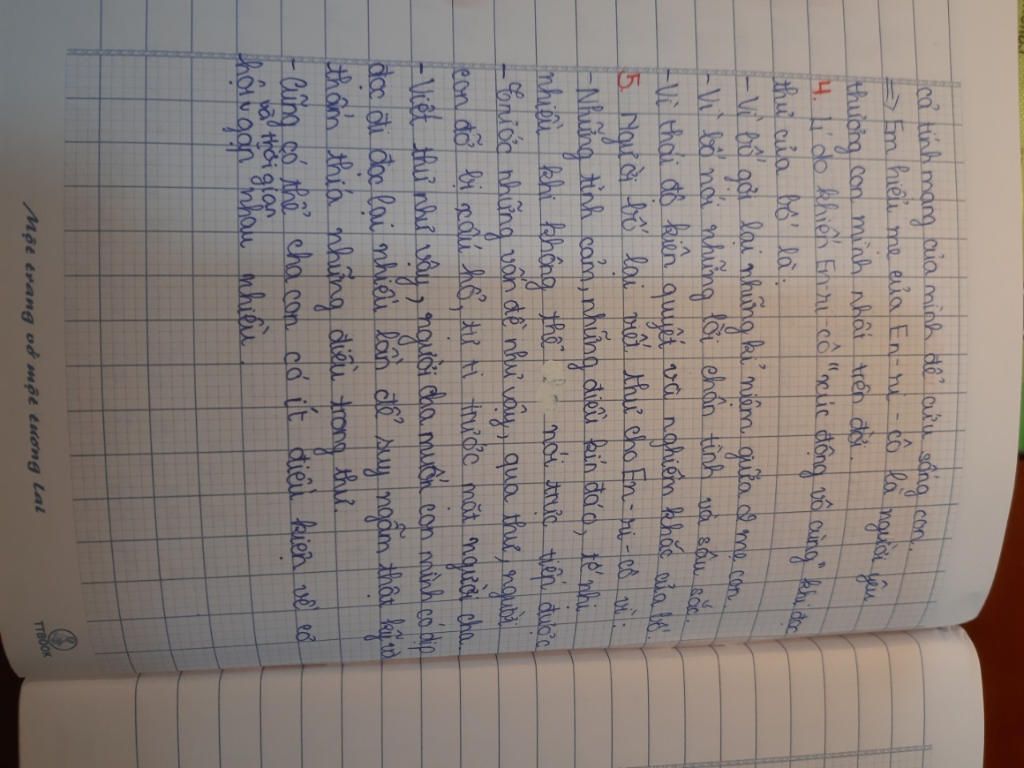 cả tính mạng của mình để cứu sống con.
=> Em hiểu mẹ của En-ri-cô là người yêu
thương con mình nhất trên đời.
4. Lí do khiến En-ri-cô "xúc động vô cùng" khi đọc
thư của bố là:
- Vì bố gợi lại những kỉ niệm giữa 2 mẹ con.
- Vì bố nói những lời chân tình và sâu sắc.
- Vì thái độ kiên quyết và nghiêm khắc của bố.
5. Người bố lại viết thư cho En-ri-cô vì:
- Những tình cảm, những điều kín đáo, tế nhị
nhiều khi không thể nói trực tiếp được
- Trước những vấn đề như vậy, qua thư, người
con đỡ bị xấu hổ, tự ti trước mặt người cha.
- Viết thư như vậy, người cha muốn con mình có dịp
đọc đi đọc lại nhiều lần để suy ngẫm thật kỹ và
thấm thía những điều trong thư.
- Cũng có thể cha con có ít điều kiện về cơ
và thời gian
hội gặp nhau nhiều.
Một trang vở một tương lai
TTBOOK